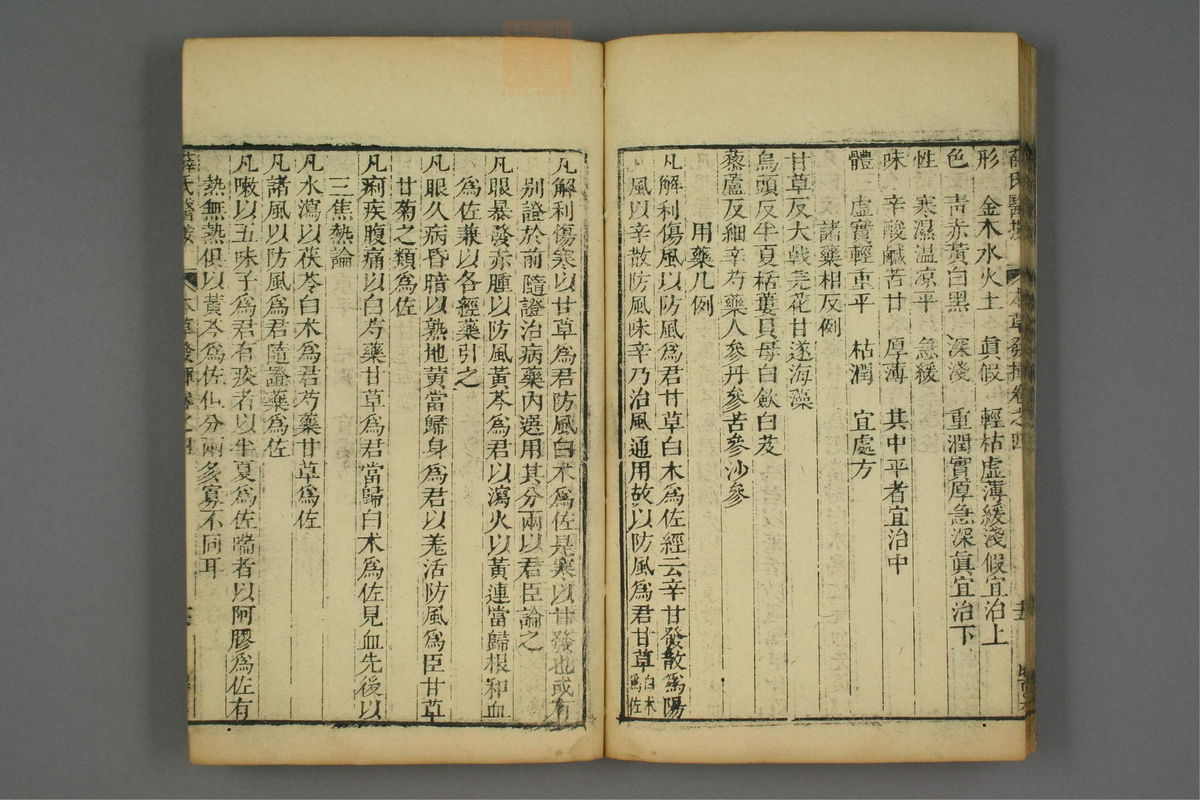 薛氏醫按 本草發揮卷之四
形 金木水火土 眞假 輕枯虛薄緩淺假宜治上
色 靑赤黃白黑 深淺 重潤實厚急深眞宜治下
性 寒濕溫凉平 急緩
味 辛酸鹹苦甘 厚薄 其中平者宜治中
體 虛實輕重平 枯潤 宜處方
諸藥相反例
甘草反大戟芫花甘遂海藻
烏頭反半夏栝蔞貝母白歛白芨
藜蘆反細辛芍藥人參丹參苦參沙參
用藥凡例
凡解利傷風以防風爲君甘草白术爲佐經云辛甘發散爲陽
風以辛散防風味辛乃治風通用故以防風爲君甘草白术爲佐
凡解利傷寒以甘草爲君防風白术爲佐是寒以甘發也或有
別證於前隨證治病藥內選用其分兩以君臣論之
凡眼暴發赤腫以防風黃芩爲君以瀉火以黃連當歸根和血
爲佐兼以各經藥引之
凡眼久病昏暗以熟地黃當歸身爲君以羌活防風爲臣甘草
甘菊之類爲佐
凡痢疾腹痛以白芍藥甘草爲君當歸白术爲佐見血先後以
三焦熱論
凡水瀉以茯苓白术爲君芍藥甘草爲佐
凡諸風以防風爲君隨證藥爲佐
凡嗽以五味子爲君有痰者以半夏爲佐喘者以阿膠爲佐有
熱無熱俱以黃芩爲佐但分兩多寡不同耳
薛氏醫按 本草發揮卷之四